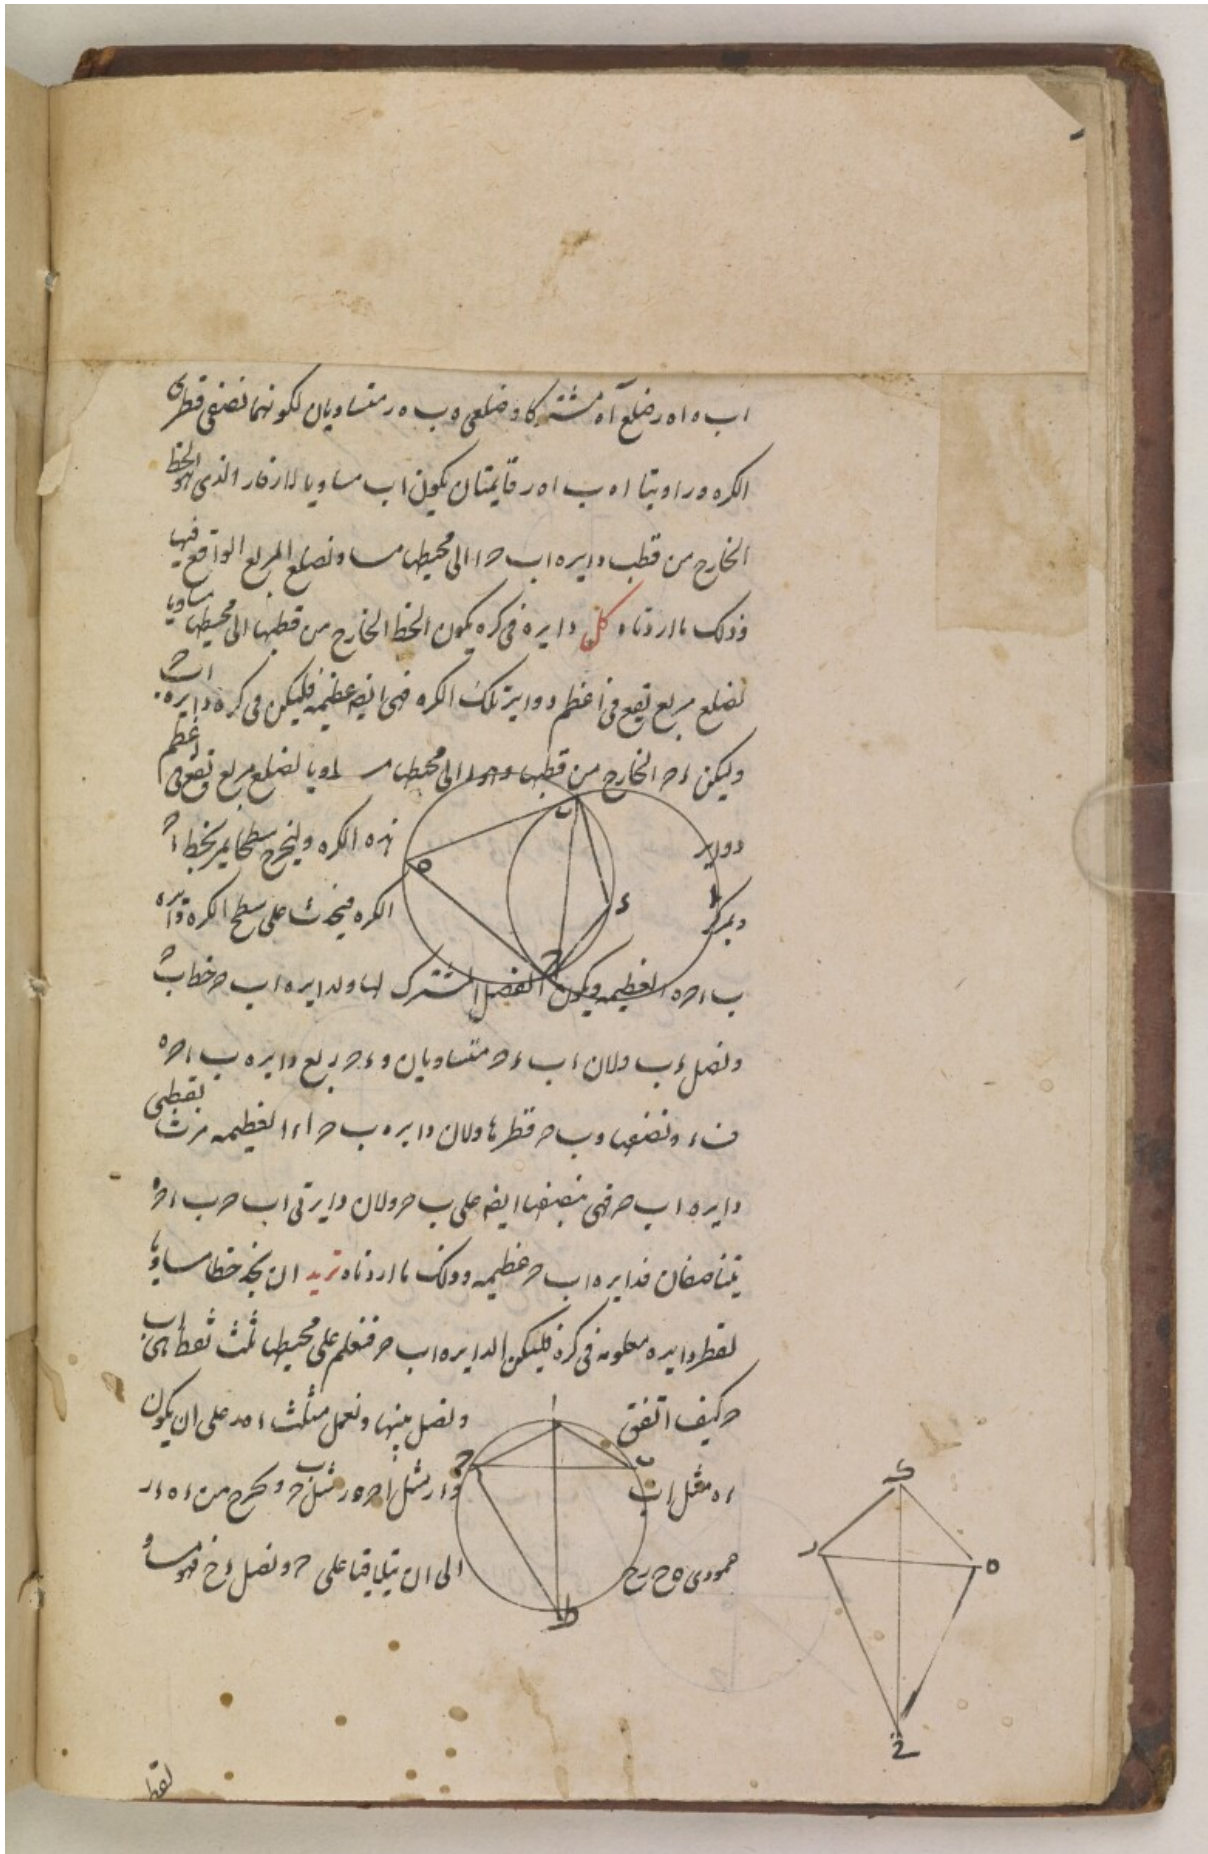 اب ه ا ه ر ضلع آه مشتركا و ضلعى ه ب ه ر متساويان لكونهما نصفى قطرى
الكره وزاويتا ا ه ب ا ه ر قايمتان يكون اب مساويا لا ر الذى هو الخط
الخارج من قطب دايره اب ح الى محيطها مساو لضلع المربع الواقع فيها
وذلك ما اردناه كل دايره فى كره يكون الخط الخارج من قطبها الى محيطها مساويا
لضلع مربع تقع فى اعظم دواير تلك الكره فهى ايضه عظيمه فليكن فى كره دايره اب ح
وليكن ء ح الخارج من قطبها وهو ء الى محيطها مساويا لضلع مربع تقع فى اعظم
دواير هذه الكره وليخرج سطحا يمر بخط ء ح
وبمركز الكره فيحدث على سطح الكره دايره
ب ء ح ه العظيمه ويكون الفصل المشترك لها ولدايره اب ح خط ب ح
ونصل ء ب ولان ء ب ء ح متساويان و ء ح ربع دايره ب ء ح ه
ف ب ء ح نصفها و ب ح قطرها ولان دايره ب ح ء العظيمه مرت بقطبى
دايره اب ح فهى تنصفها ايضه على ب ح ولان دايرتى اب ح ب ء ح ه
يتناصفان فدايره اب ح عظيمه وذلك ما اردناه نريد ان نجد خطا مساويا
لقطر دايره معلومه فى كره فليكن الدايره اب ح فنعلم على محيطها ثلث نقط هى اب
ح كيف اتفق ونصل بينها ونعمل مثلث ء ه ر على ان يكون
ء ه مثل اب و ء ر مثل ا ح و ه ر مثل ب ح ونخرج من ء ه ء ر
عمودى ه ح ر ح الى ان يتلاقيا على ح ونصل ء ح فهو مساو
لقط
ب
ه
ء
ا
ح
ا
ب
ح
ط
ء
ر
ه
ح